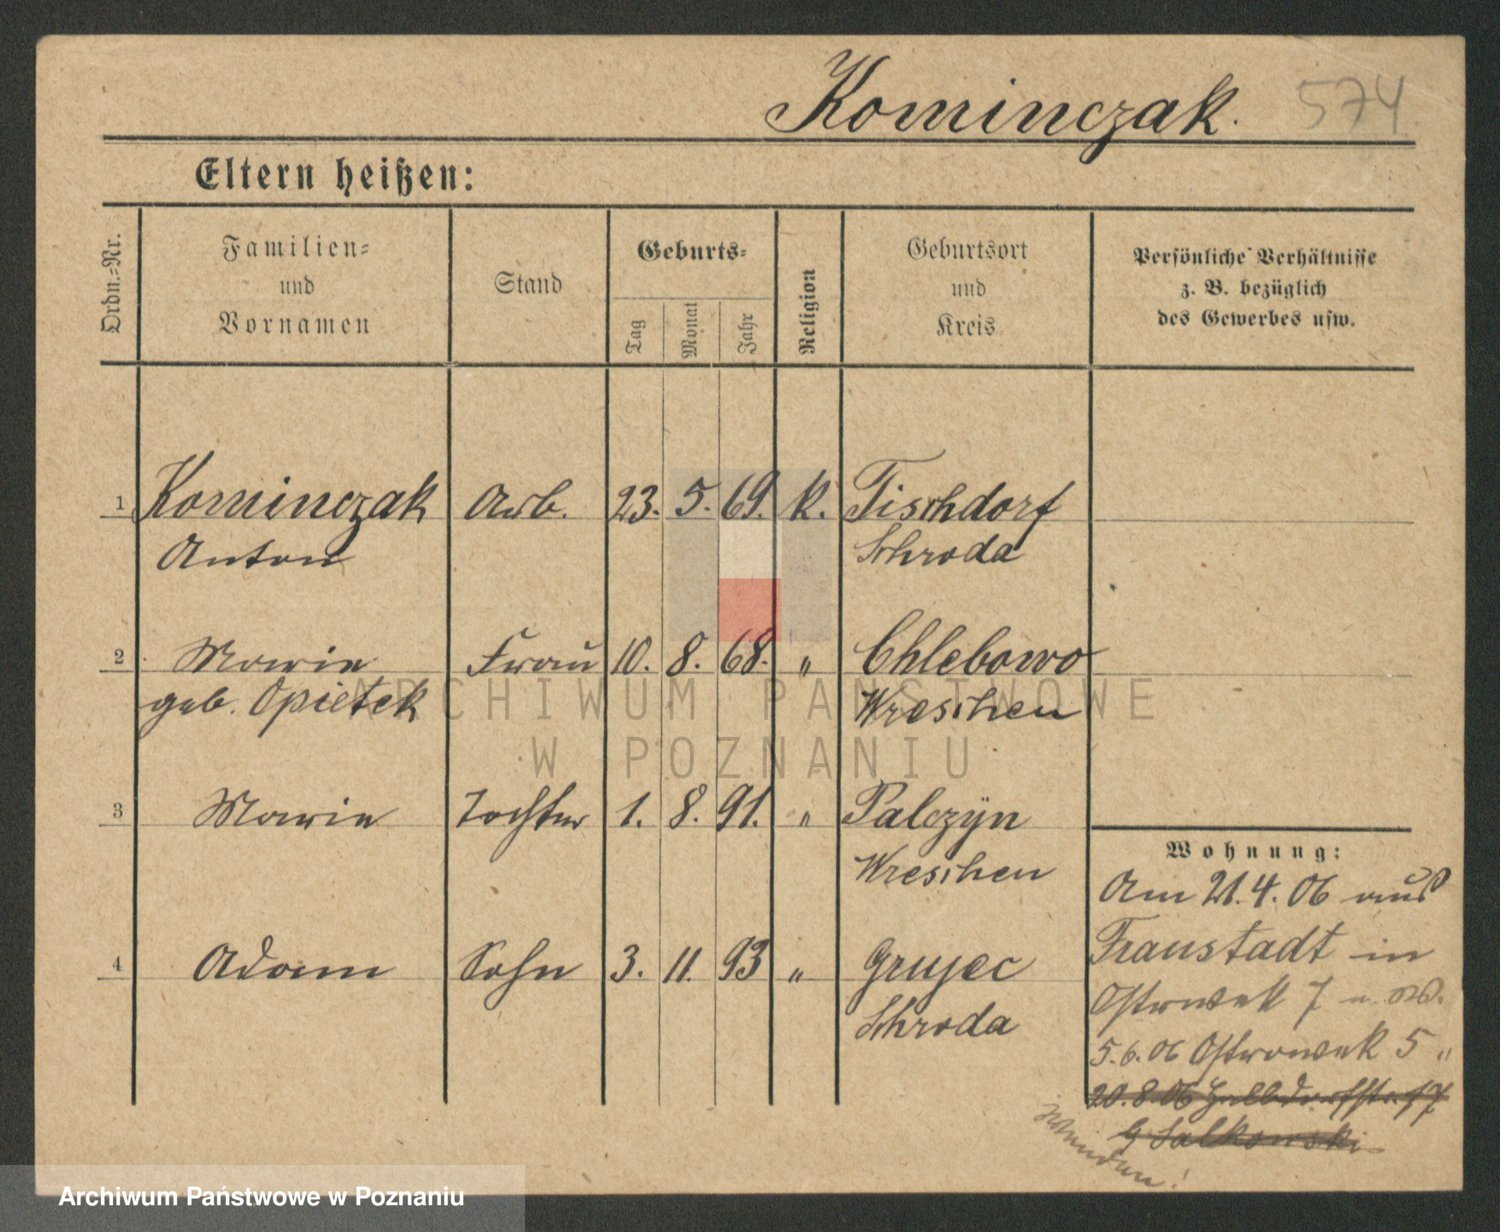 Kominczak. 574
Eltern heißen:
Ordn.=Nr.
Familien=
und
Vornamen
Stand
Geburts=
Tag Monat Jahr
Religion
Geburtsort
und
Kreis
Persönliche Verhältnisse
z. B. bezüglich
des Gewerbes usw.
1 Kominczak Arb. 23. 5. 69. k. Tischdorf
Anton Schroda
2 Marie Frau 10. 8. 68. " Chlebowo
geb. Opietek Wreschen
3 Marie Tochter 1. 8. 91. " Palczyn
Wreschen
4 Adam Sohn 3. 11. 93 " Grujec
Schroda
Wohnung:
Am 21.4.06 aus
Fraustadt in
Ostrowek 7
5.6.06 Ostrowek 5 "
20.8.06 Halbdorfstr. 17
Salkowski
ARCHIWUM PAŃSTWOWE
W POZNANIU
Archiwum Państwowe w Poznaniu